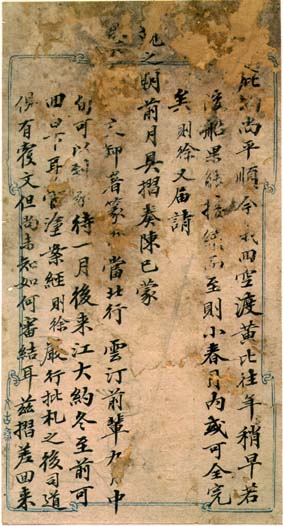 庇尚平順今歲回空渡黃比往年稍早若
後船果能接續而至則小春月內或可全完
矣則徐又届請
之期前月具摺奏陳已蒙
知當北行雲汀前輩九月中
旬可以到待一月後來江大約冬至前可
回耳塗案經則徐嚴行批札之後司道
俱有覆文但尚未知如何審結耳茲摺差回來